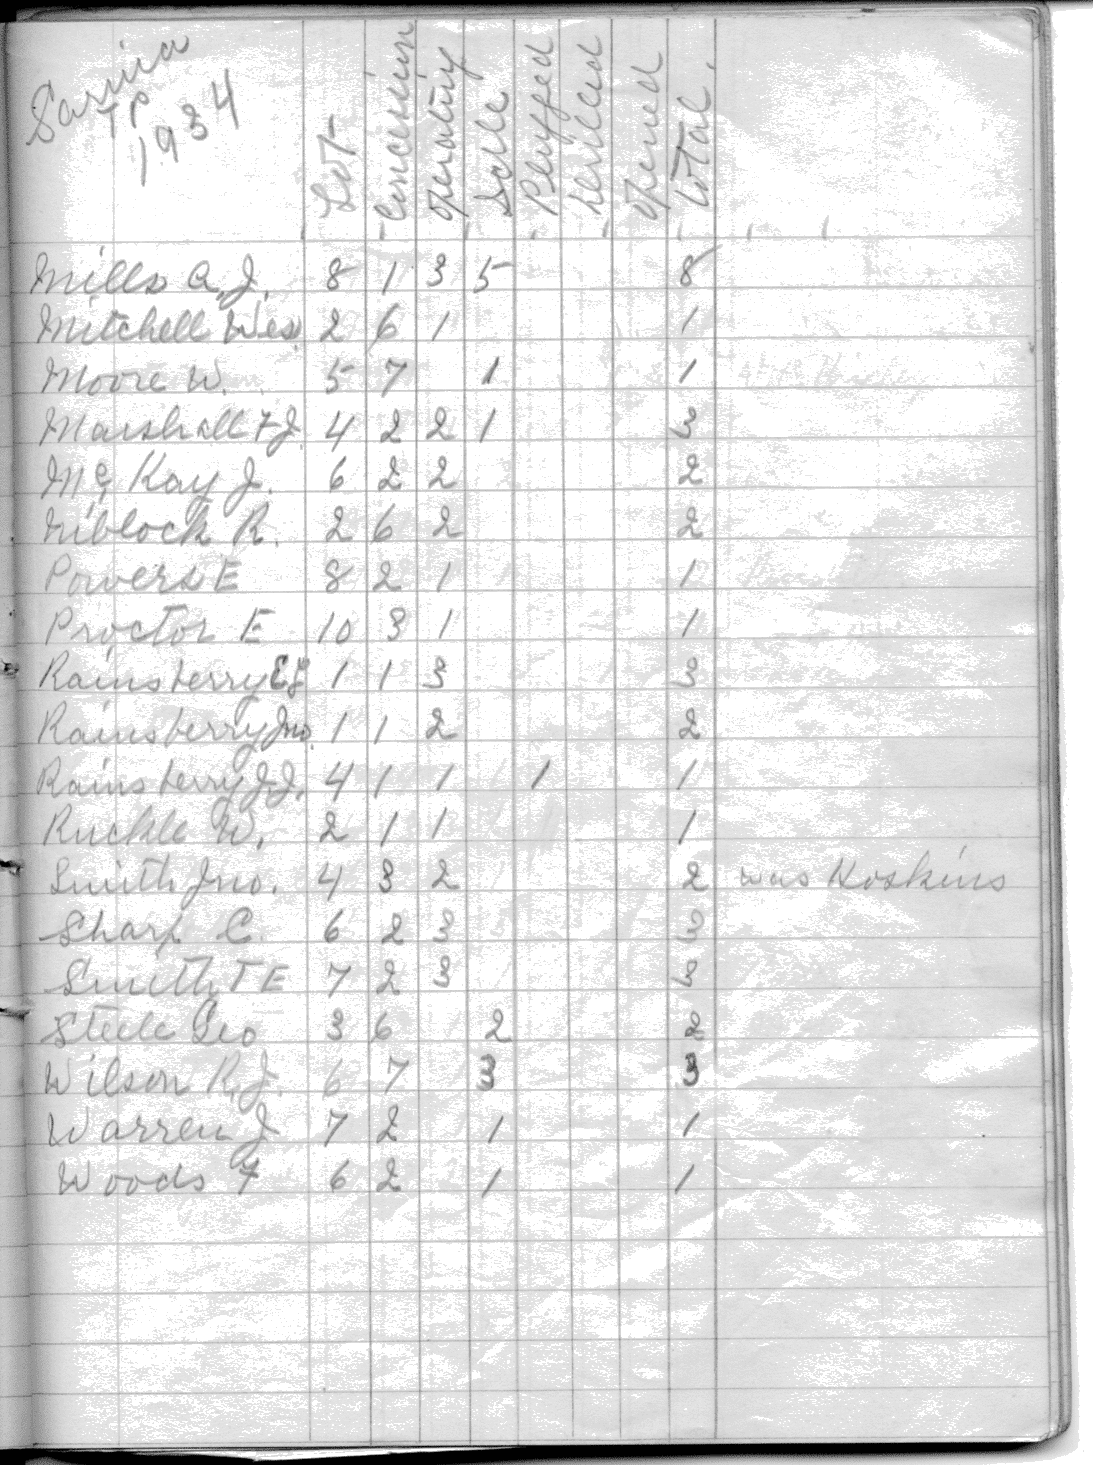 Sarnia
TP
1934
Lot Concession Operating Idle Plugged Drilled Opened Total.
Mills A. J. 8 1 3 5 8
Mitchell Wes. 2 6 1 1
Moore W. 5 7 1 1
Marshall F J. 4 2 2 1 3
Mc Kay J. 6 2 2 2
Niblock R. 2 6 2 2
Powers E 8 2 1 1
Proctor E 10 3 1 1
Rainsberry E J 1 1 3 3
Rainsberry Jno. 1 1 2 2
Rainsberry J. J. 4 1 1 1 1
Ruckle W. 2 1 1 1
Smith Jno. 4 3 2 2 was Hoskins
Sharp C. 6 2 3 3
Smith T E 7 2 3 3
Steele Geo 3 6 2 2
Wilson R. J. 6 7 3 3
Warren J 7 2 1 1
Woods F 6 2 1 1